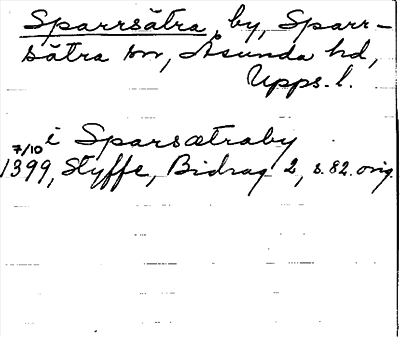 Sparrsätra, by, Sparr-
sätra sn, Åsunda hd,
Upps. l.
i Sparsætraby
7/10
1399, Styffe, Bidrag 2, s. 82. orig.